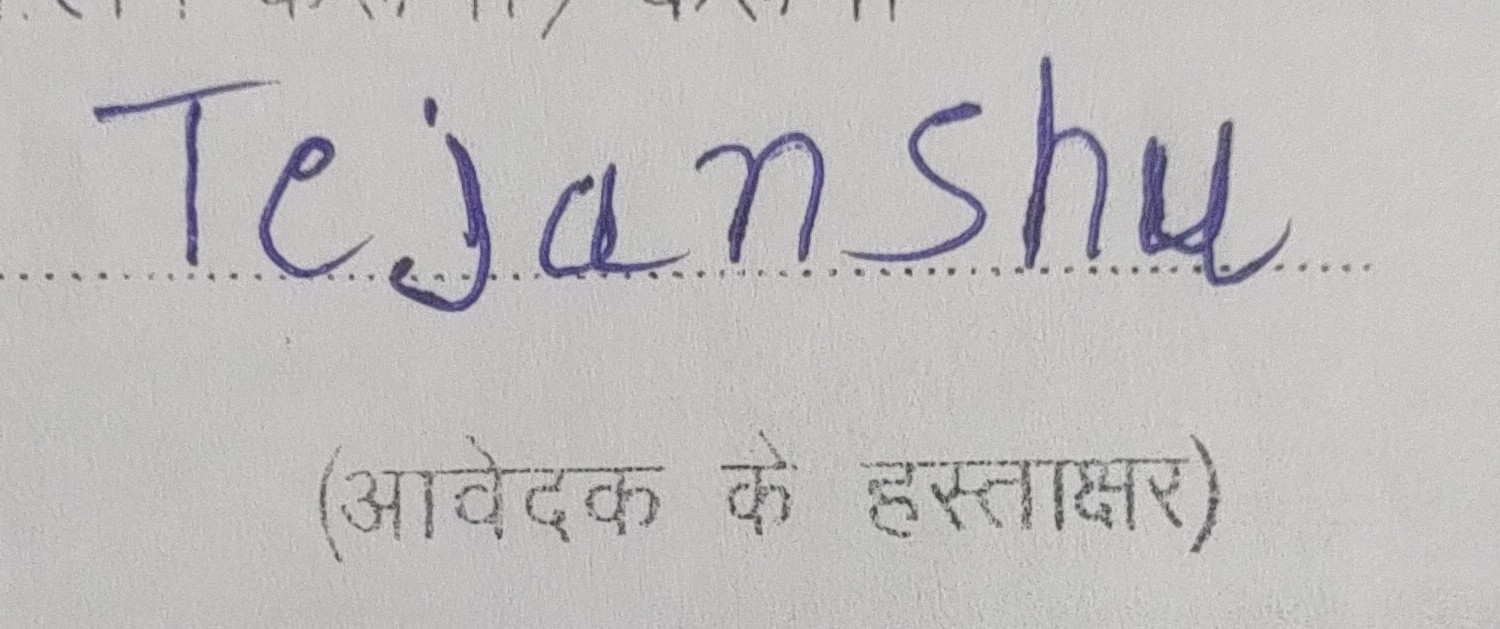 Tejanshu
(आवेदक के हस्ताक्षर)